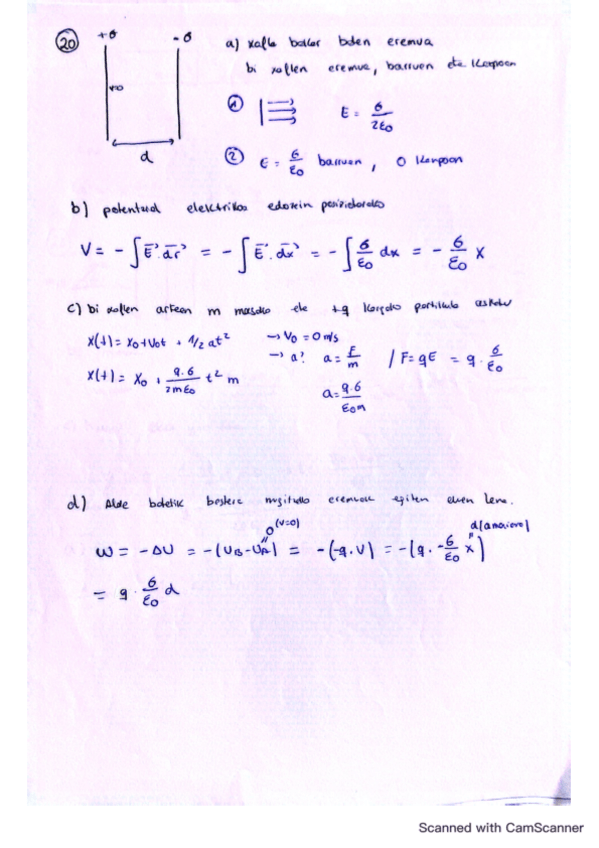 20 +σ -σ a) xafla bakar baten eremua
bi xaflen eremua, barruan eta kanpoan
x=0
① E = σ/2ε₀
d
② E = σ/ε₀ barruan, 0 kanpoan
b) potentzial elektrikoa edozein posiziotarako
V = - ∫ E⃗ · dr⃗ = - ∫ E⃗ · dx⃗ = - ∫ σ/ε₀ dx = - σ/ε₀ x
c) bi xaflen artean m masako eta +q kargako partikula askatu
x(t) = x₀ + v₀t + 1/2 at² → v₀ = 0 m/s
→ a? a = F/m / F = qE = q · σ/ε₀
x(t) = x₀ + q·σ/2mε₀ t² m
a = q·σ/ε₀m
d) Alde batetik bestera mugitzeko eremuak egiten duen lana.
0 (V=0) d (amaiera)
W = -ΔU = -(U_B - U_A) = -(-q·V) = -(q · -σ/ε₀ x)
= q · σ/ε₀ d
Scanned with CamScanner